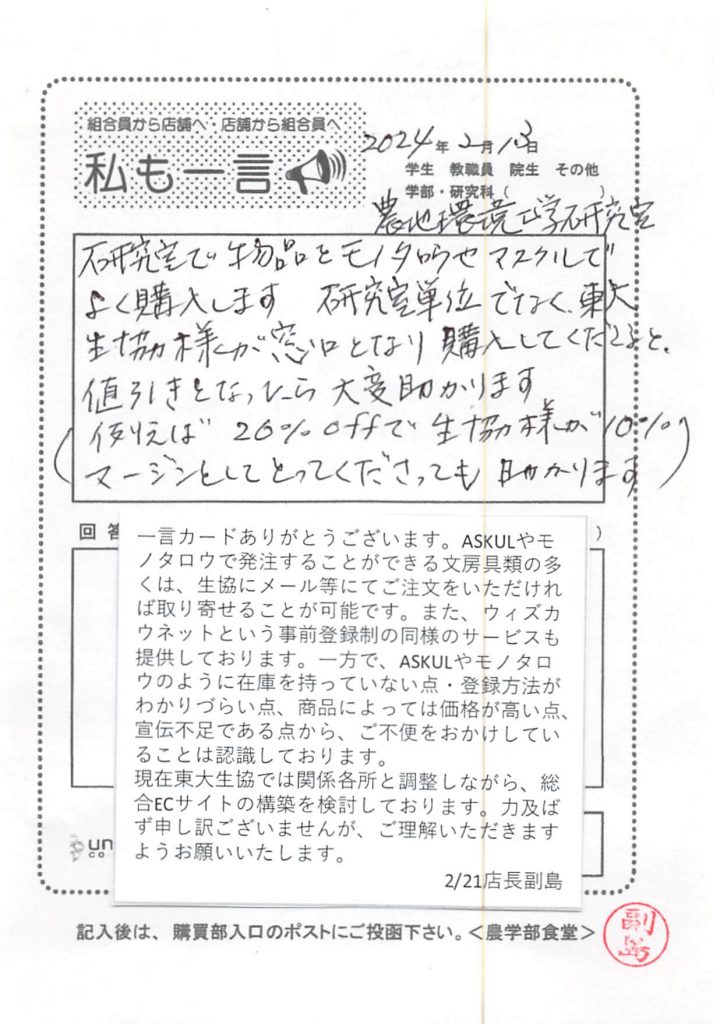 組合員から店舗へ・店舗から組合員へ
私も一言
2024年2月13日
学生 教職員 院生 その他
学部・研究科( )
農地環境工学研究室
研究室で物品をモノタロウやアスクルで
よく購入します 研究室単位でなく、東大
生協様が窓口となり購入してくださると、
値引きとなったら大変助かります
(例えば 20% offで生協様が10%
マージンとしてとってくださっても助かります)
回答
)
一言カードありがとうございます。ASKULやモ
ノタロウで発注することができる文房具類の多
くは、生協にメール等にてご注文をいただけれ
ば取り寄せることが可能です。また、ウィズカ
ウネットという事前登録制の同様のサービスも
提供しております。一方で、ASKULやモノタロ
ウのように在庫を持っていない点・登録方法が
わかりづらい点、商品によっては価格が高い点、
宣伝不足である点から、ご不便をおかけしてい
ることは認識しております。
現在東大生協では関係各所と調整しながら、総
合ECサイトの構築を検討しております。力及ば
ず申し訳ございませんが、ご理解いただきます
ようお願いいたします。
2/21店長副島
un
co
記入後は、購買部入口のポストにご投函下さい。<農学部食堂>
副島